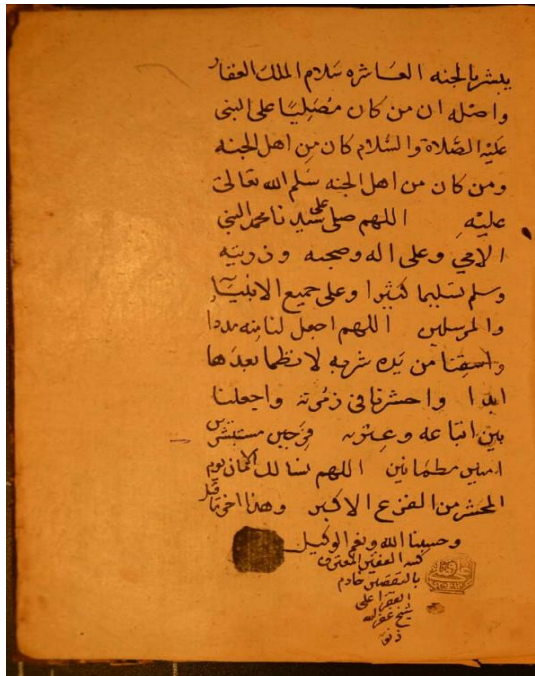 يبشر بالجنه العاشره سلام الملك الغفار
واصله ان من كان مصليا على النبي
عليه الصلاة والسلام كان من اهل الجنه
ومن كان من اهل الجنه سلم الله تعالى
عليه اللهم صلي على سيدنا محمد النبي
الامي وعلى اله وصحبه وذريته
وسلم تسليما كثيرا وعلى جميع الانبيآء
والمرسلين اللهم اجعل لنا منه مددا
واسقنا من يده شربه لا نظما بعدها
ابدا واحشرنا في زمرته واجعلنا
بين اتباعه وعترته فرحين مستبشرين
امنين مطمانين اللهم نسالك الامان يوم
المحشر من الفزع الاكبر وهذا اخر ما
وحسبنا الله ونعم الوكيل
كتبه الفقير المعترف
بالتقصير خادم
الفقرا على
شيخ غفر له